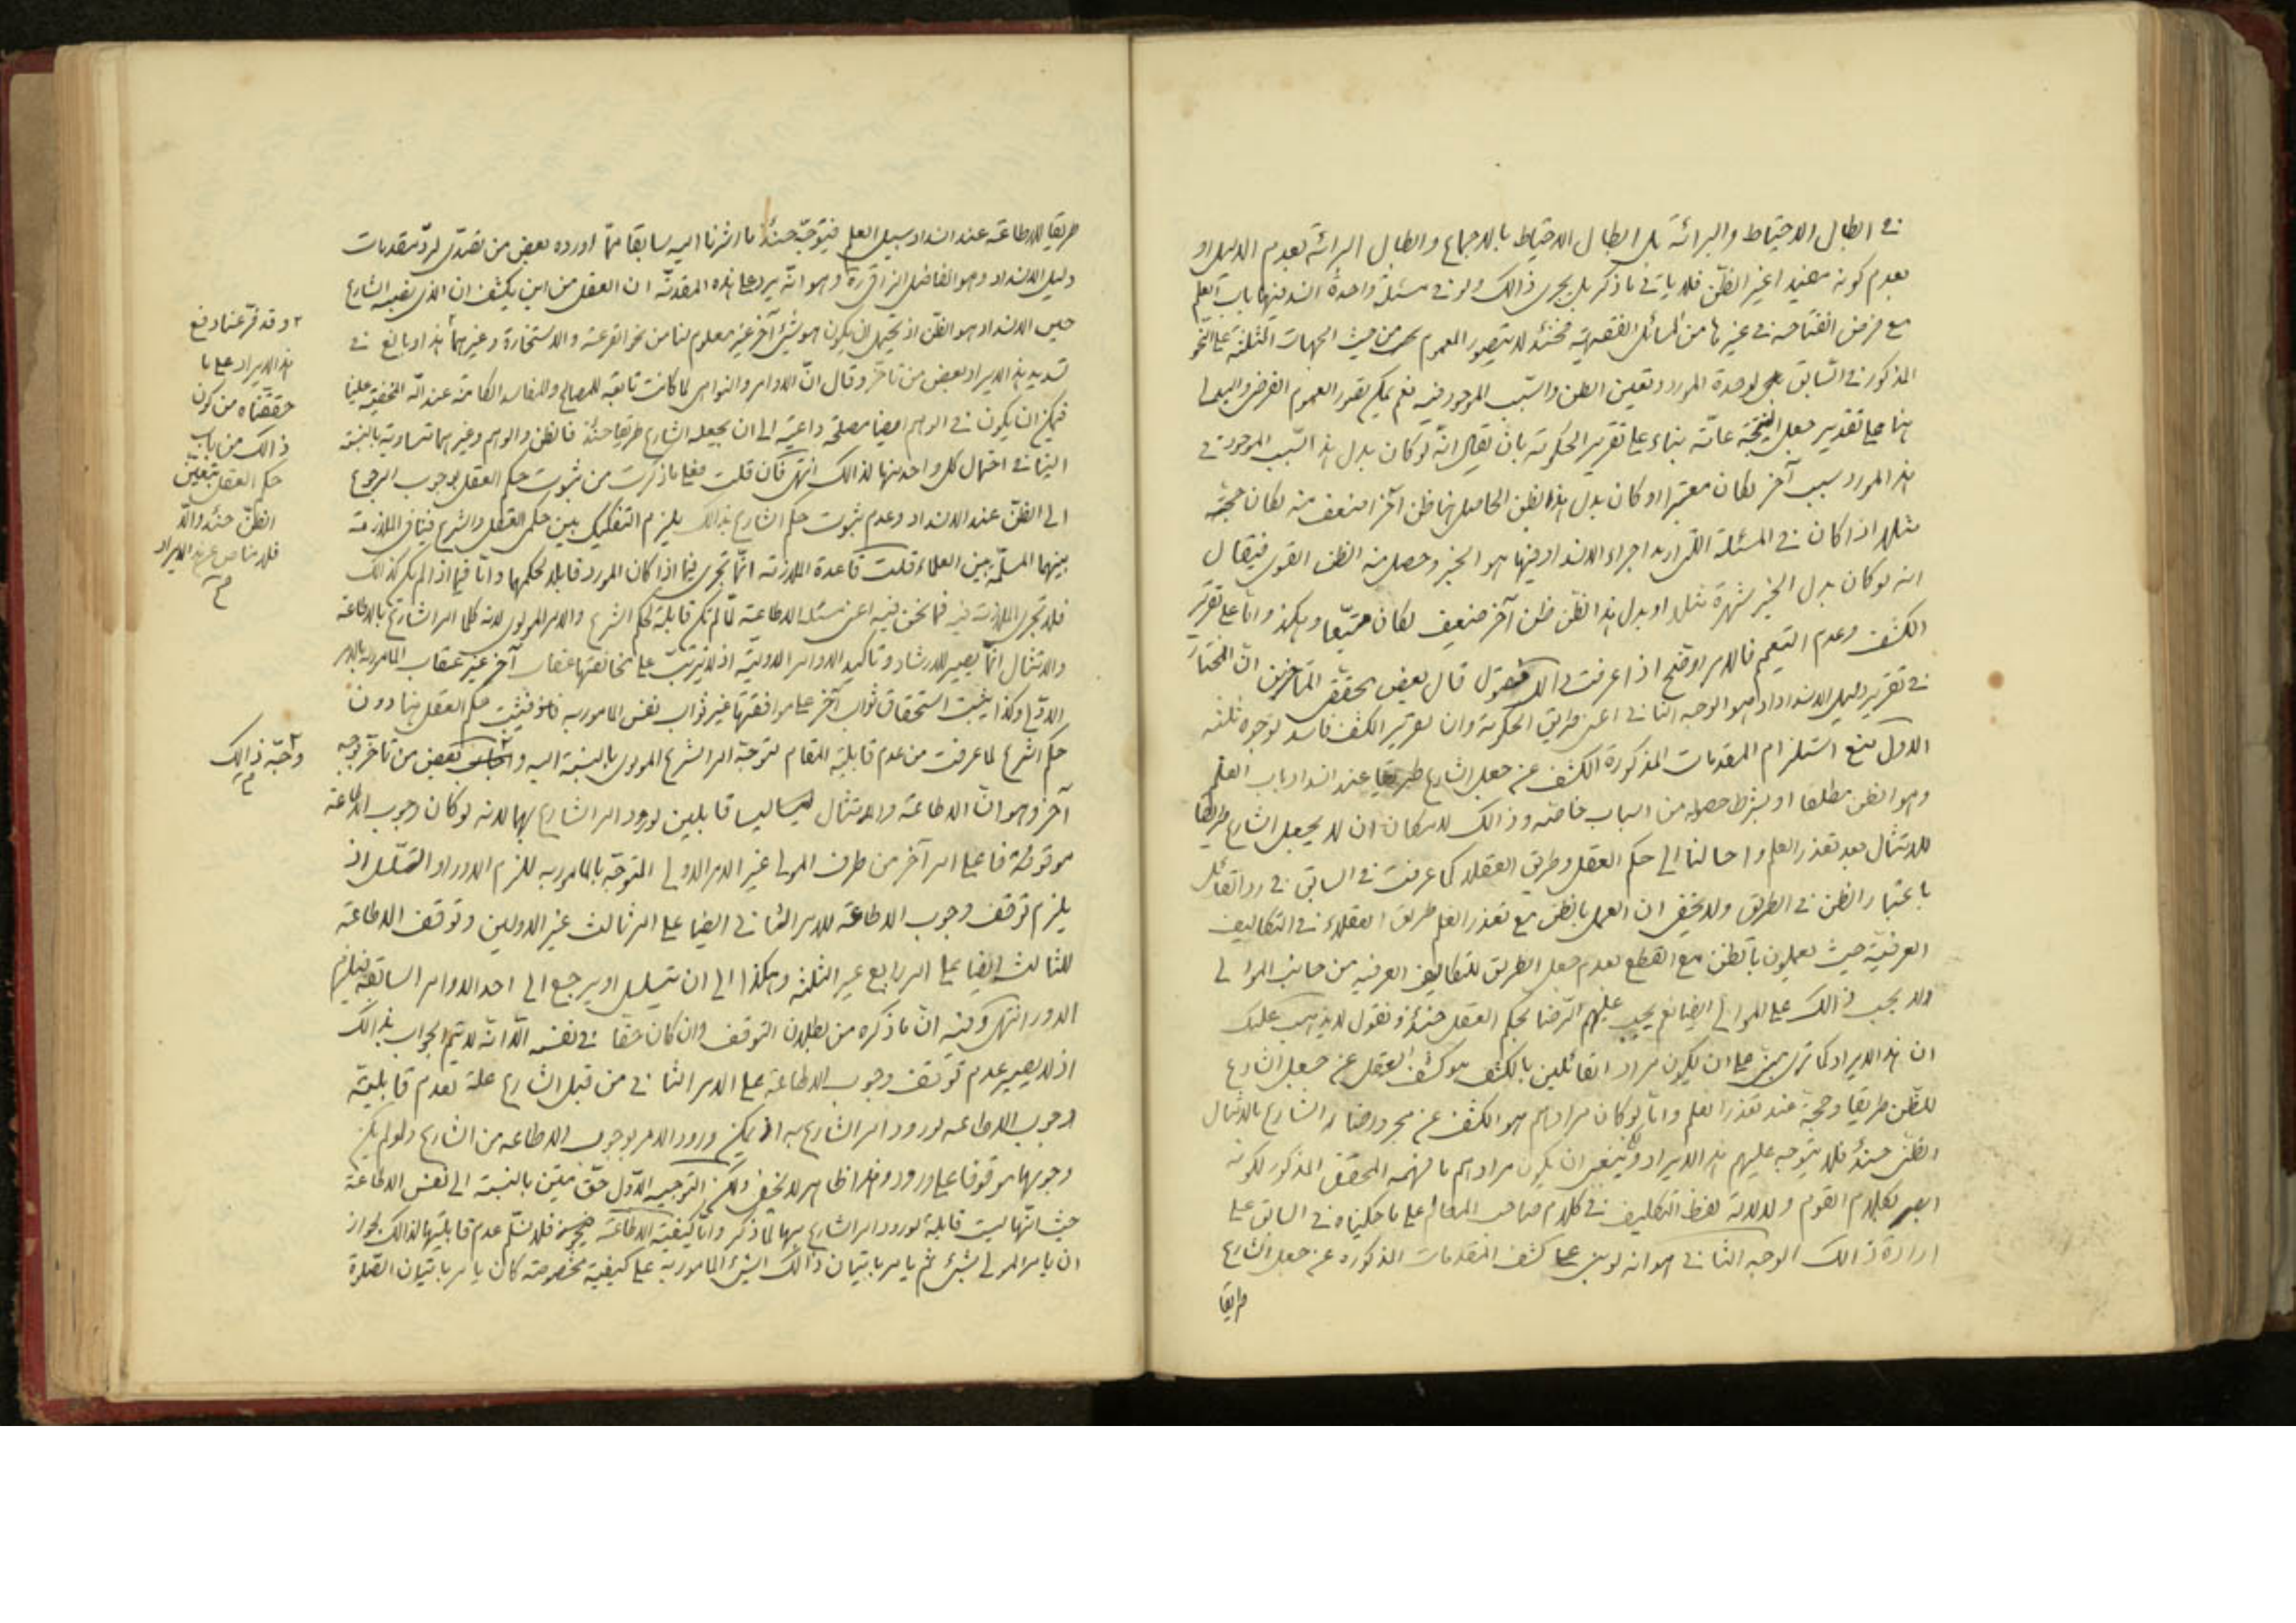 في ابطال الاحتياط والبرائة بل ابطال الاحتياط بالاجماع وابطال البرائة بعدم الدليل او
بعدم كونه مفيدا لغير الظن فلا يأتي ما ذكر بل يجرى ذالك ولو في مسئلة واحدة انسد فيها باب العلم
مع فرض انفتاحه في غيرها من المسائل الفقهية فحينئذ لا يتصور العموم من حيث الجهات الثلثة على النحو
المذكور في السابق لوحدة المورد وتعين الظن والسبب الموجود فيه نعم يمكن تصور العموم الفرضي والبدلي
هنا على تقدير جعل النتيجة عامة بناء على تقرير الحكومة بان يقال انه لو كان بدل هذا السبب الموجود في
هذا المورد سبب آخر لكان معتبرا او كان بدل هذا الظن الحاصل هنا ظن آخر اضعف منه لكان حجة
مثلا اذا كان في المسئلة التى اريد اجراء الانسداد فيها هو الخبر وحصل منه الظن القوى فيقال
انه لو كان بدل الخبر شهرة مثلا او بدل هذا الظن ظن آخر ضعيف لكان متبعا وهكذا واما على تقرير
الكشف وعدم التعميم فالامر اوضح اذا عرفت ذالك فنقول قال بعض محققى المتأخرين ان المختار
في تقرير دليل الانسداد هو الوجه الثاني اعنى طريق الحكومة وان تقرير الكشف فاسد لوجوه ثلثه
الاول منع استلزام المقدمات المذكورة الكشف عن جعل الشارع طريقا عند انسداد باب العلم
وهو الظن مطلقا او بشرط حصوله من اسباب خاصه وذالك لامكان ان لا يجعل الشارع طريقا
للامتثال بعد تعذر العلم واحالنا الى حكم العقل وطريق العقلاء كما عرفت في السابق في رد القائل
باعتبار الظن في الطريق ولا يخفى ان العمل بالظن مع تعذر العلم طريق العقلاء في التكاليف
العرفية حيث يعملون بالظن مع القطع بعدم جعل الطريق للتكاليف العرفيه من جانب الموالى
ولا يجب ذالك على الموالى ايضا نعم يجب عليهم الرضا بحكم العقل حينئذ ونقول لا يذهب عليك
ان هذا الايراد كما ترى مبنى على ان يكون مراد القائلين بالكشف هو كشف العقل عن جعل الشارع
للظن طريقا وحجة عند تعذر العلم واما لو كان مرادهم هو الكشف عن مجرد رضاء الشارع بالامتثال
الظنى حينئذ فلا يتوجه عليهم هذا الايراد وينبغى ان يكون مرادهم ما فهمه المحقق المذكور لكونه
انسب بكلام القوم ولدلالة لفظ التكليف في كلام صاحب المعالم على ما حكيناه في السابق على
ارادة ذالك الوجه الثاني هو انه لو بنى على كشف المقدمات المذكوره عن جعل الشارع
طريقا
طريقا للاطاعة عند انسداد سبيل العلم فيتوجه حينئذ ما اشرنا اليه سابقا مما اورده بعض من تصدى لرد مقدمات
دليل الانسداد وهو الفاضل النراقى ره وهو انه يرد على هذه المقدمة ان العقل من اين يكشف ان الذى نصبه الشارع
حين الانسداد هو الظن اذ يحتمل ان يكون هو شئ آخر غير معلوم لنا من نحو القرعة والاستخارة وغيرهما هذا وبالغ في
تسديد هذا الايراد بعض من تأخر وقال ان الاوامر والنواهى لما كانت تابعة للمصالح والمفاسد الكامنة عند الله المخفية علينا
فيمكن ان يكون في الوهم ايضا مصلحة داعية الى ان يجعله الشارع طريقا حينئذ فالظن والوهم وغيرهما متساوية بالنسبة
الينا في احتمال كل واحد منها لذالك انتهى فان قلت فعلى ما ذكرت من ثبوت حكم العقل بوجوب الرجوع
الى الظن عند الانسداد وعدم ثبوت حكم الشارع بذالك يلزم التفكيك بين حكمى العقل والشرع فينافى الملازمة
بينهما المسلمة بين العلماء قلت قاعدة الملازمة انما تجرى فيما اذا كان المورد قابلا لحكمهما واما فيما اذا لم يكن كذالك
فلا تجرى الملازمة فيه فما نحن فيه اعنى مسئلة الاطاعة لما لم تكن قابلة لحكم الشرع والامر المولوى لانه كلما امر الشارع بالاطاعة
والامتثال انما يصير للارشاد وتأكيد الاوامر الاولية اذ لا يترتب على مخالفتها عقاب آخر غير عقاب المأمور به بالامر
الاولى وكذا لا يثبت استحقاق ثواب آخر على موافقتها غير ثواب نفس المأمور به فيثبت حكم العقل هنا دون
حكم الشرع لما عرفت من عدم قابلية المقام لتوجه امر الشرع المولوى بالنسبة اليه واجاب بعض من تأخر بوجه
آخر وهو ان الاطاعة والامتثال ليسا قابلين لورود امر الشارع بهما لانه لو كان وجوب الاطاعة
موقوفا على امر آخر من طرف المولى غير الامر الاولى المتوجه بالمأمور به للزم الدور او التسلسل اذ
يلزم توقف وجوب الاطاعة للامر الثاني ايضا على امر ثالث غير الاولين وتوقف الاطاعة
للثالث ايضا على امر رابع غير الثلثة وهكذا الى ان يتسلسل او يرجع الى احد الاوامر السابقة فيلزم
الدور انتهى وفيه ان ما ذكره من بطلان التوقف وان كان حقا في نفسه الا انه لا يتم الجواب بذالك
اذ لا يصير عدم توقف وجوب الاطاعة على الامر الثاني من قبل الشارع علة لعدم قابلية
وجوب الاطاعه لورود امر الشارع به اذ يمكن ورود الامر بوجوب الاطاعه من الشارع ولو لم يكن
وجوبها موقوفا على وروده وهذا ظاهر لا يخفى ولكن التوجيه الاول حق متين بالنسبة الى نفس الاطاعة
حيث انها ليست قابلة لورود امر الشارع بها لما ذكر واما كيفية الاطاعة فلا نسلم عدم قابليتها لذالك لجواز
ان يامر المولى بشئ ثم يامر باتيان ذالك الشئ المأمور به على كيفية مخصوصة كان يامر باتيان الصلوة
وقد فرغنا دفع
هذا الايراد على ما
حققناه من كون
ذالك من باب
حكم العقل بتعين
الظن حينئذ والا
فلا مناص عن هذا الايراد
م
وجه ذالك
م